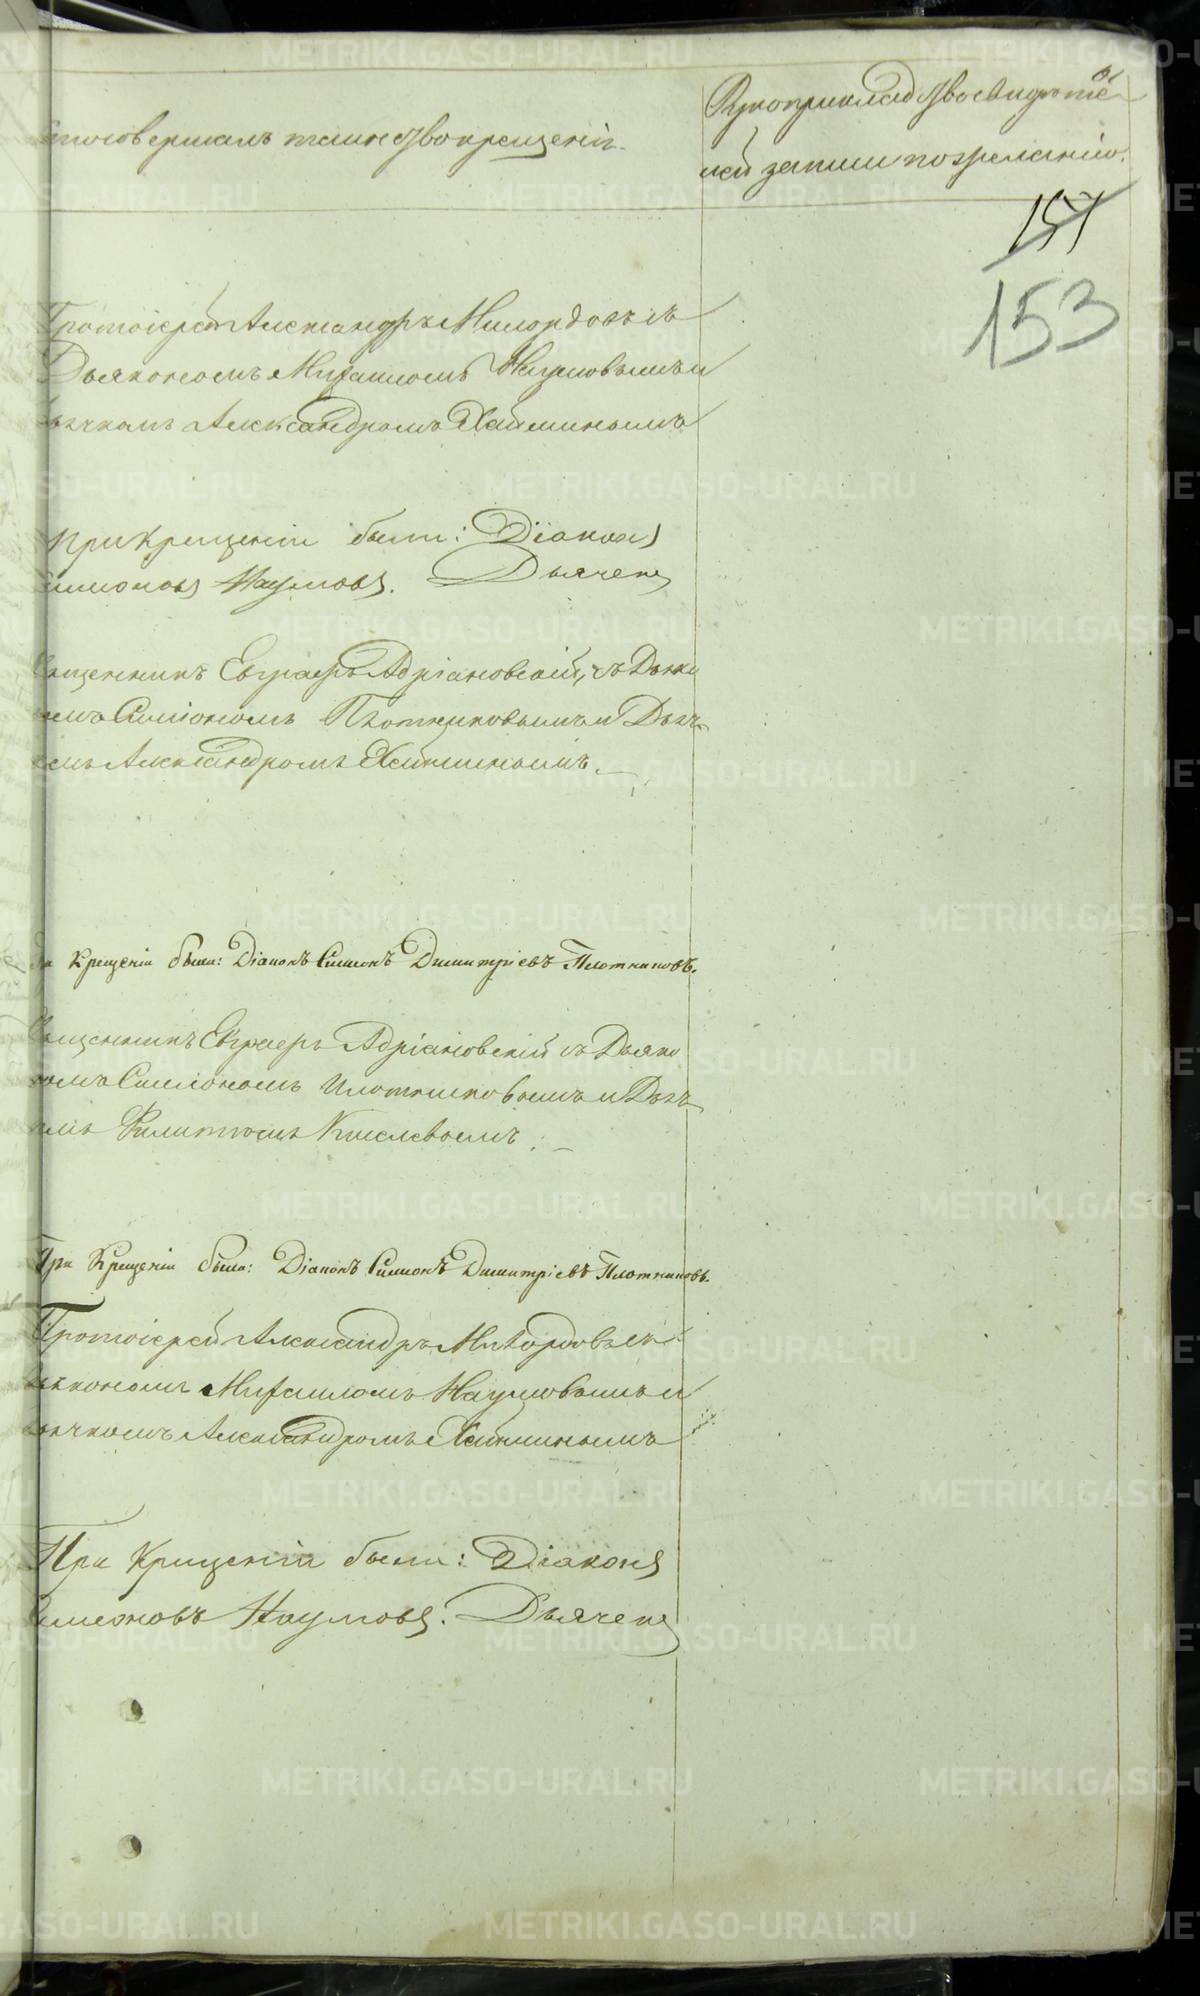 Кто совершалъ таинство крещенія.
Рукоприкладство свидѣте
лей записи по желанію.
61
151
153
Протоіерей Александръ Милордовъ съ
Дьякономъ Михаиломъ Наумовымъ и
Дьячкомъ Александромъ Хайминымъ
При Крещеніи были: Діаконъ
Наумовъ. Дьячекъ
Священникъ Евграфъ Адріановскій, съ Дьяко
номъ Симіономъ Плотниковымъ и Дьяч-
комъ Александромъ Хайминымъ.
При Крещеніи были: Діаконъ Симеонъ Димитріевъ Плотниковъ.
Священникъ Евграфъ Адріановскій съ Дьяко
номъ Симіономъ Плотниковымъ и Дьяч
комъ Филиппомъ Киселевымъ.
При Крещеніи были: Діаконъ Симеонъ Димитріевъ Плотниковъ.
Протоіерей Александръ Милордовъ съ
Дьякономъ Михаиломъ Наумовымъ и
Дьячкомъ Александромъ Хайминымъ
При Крещеніи были: Діаконъ
Наумовъ. Дьячекъ
METRIKI.GASO-URAL.RU